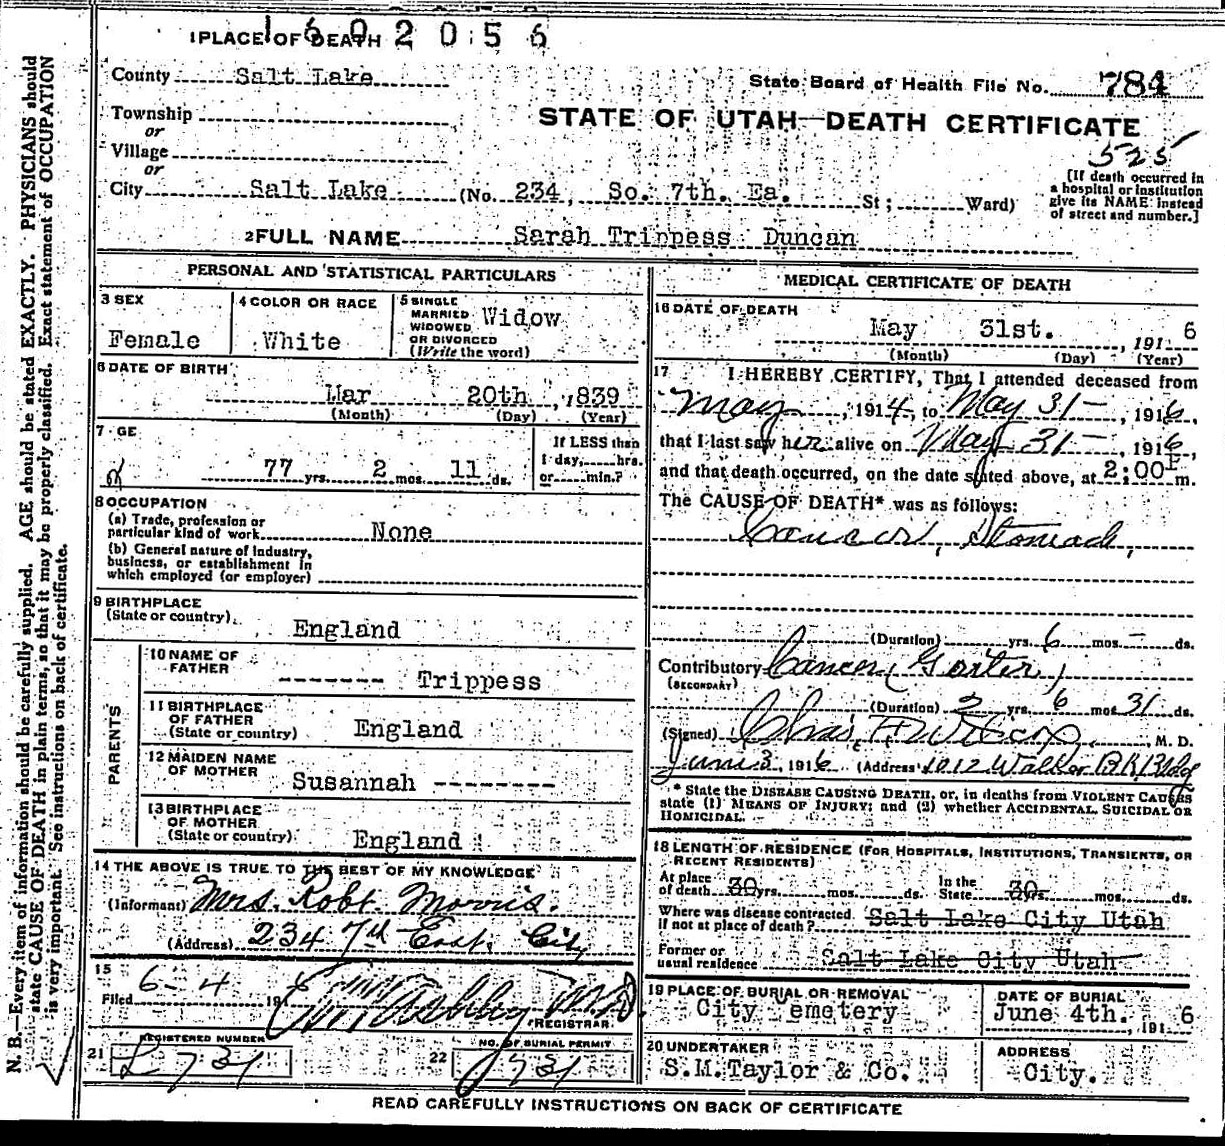 1 PLACE OF DEATH 1602056
County Salt Lake
State Board of Health File No. 784
Township
or
STATE OF UTAH—DEATH CERTIFICATE
Village
or
525
City Salt Lake (No. 234, So. 7th. Ea. St; Ward)
[If death occurred in
a hospital or institution
give its NAME instead
of street and number.]
2 FULL NAME Sarah Trippess Duncan
PERSONAL AND STATISTICAL PARTICULARS
3 SEX
Female
4 COLOR OR RACE
White
5 SINGLE
MARRIED
WIDOWED
OR DIVORCED
(Write the word)
Widow
6 DATE OF BIRTH
Mar 20th, 1839
(Month) (Day) (Year)
7 GE
77 yrs. 2 mos. 11 ds.
If LESS than
1 day, hrs.
or min.?
8 OCCUPATION
(a) Trade, profession or
particular kind of work None
(b) General nature of industry,
business, or establishment in
which employed (or employer)
9 BIRTHPLACE
(State or country) England
PARENTS
10 NAME OF
FATHER ------- Trippess
11 BIRTHPLACE
OF FATHER
(State or country) England
12 MAIDEN NAME
OF MOTHER Susannah -------
13 BIRTHPLACE
OF MOTHER
(State or country) England
14 THE ABOVE IS TRUE TO THE BEST OF MY KNOWLEDGE
(Informant) Mrs. Robt. Morris.
(Address) 234 7th East. City
15
Filed 6-4 191 M.D.
REGISTRAR
REGISTERED NUMBER
21
NO. OF BURIAL PERMIT
22
MEDICAL CERTIFICATE OF DEATH
16 DATE OF DEATH
May 31st. , 1916
(Month) (Day) (Year)
17 I HEREBY CERTIFY, That I attended deceased from
May , 1914, to May 31 - , 1916,
that I last saw her alive on May 31 - , 1916,
and that death occurred, on the date stated above, at 2:00 P m.
The CAUSE OF DEATH* was as follows:
Cancer, Stomach,
(Duration) yrs. 6 mos. - ds.
Contributory Cancer (Goiter)
(SECONDARY)
(Duration) yrs. 6 mos. 31 ds.
(Signed) Chas. F. Wilcox, M. D.
June 3, 1916 (Address) 1012 Walker BK Bldg
* State the DISEASE CAUSING DEATH, or, in deaths from VIOLENT CAUSES
state (1) MEANS OF INJURY; and (2) whether ACCIDENTAL SUICIDAL OR
HOMICIDAL.
18 LENGTH OF RESIDENCE (FOR HOSPITALS, INSTITUTIONS, TRANSIENTS, OR
RECENT RESIDENTS)
At place
of death 30 yrs. mos. ds.
In the
State 30 s. mos. ds.
Where was disease contracted
if not at place of death? Salt Lake City Utah
Former or
usual residence Salt Lake City Utah
19 PLACE OF BURIAL OR REMOVAL
City emetery
DATE OF BURIAL
June 4th. , 1916
20 UNDERTAKER
S.M.Taylor & Co.
ADDRESS
City.
READ CAREFULLY INSTRUCTIONS ON BACK OF CERTIFICATE
N. B.—Every item of information should be carefully supplied. AGE should be stated EXACTLY. PHYSICIANS should
state CAUSE OF DEATH in plain terms, so that it may be properly classified. Exact statement of OCCUPATION
is very important. See instructions on back of certificate.